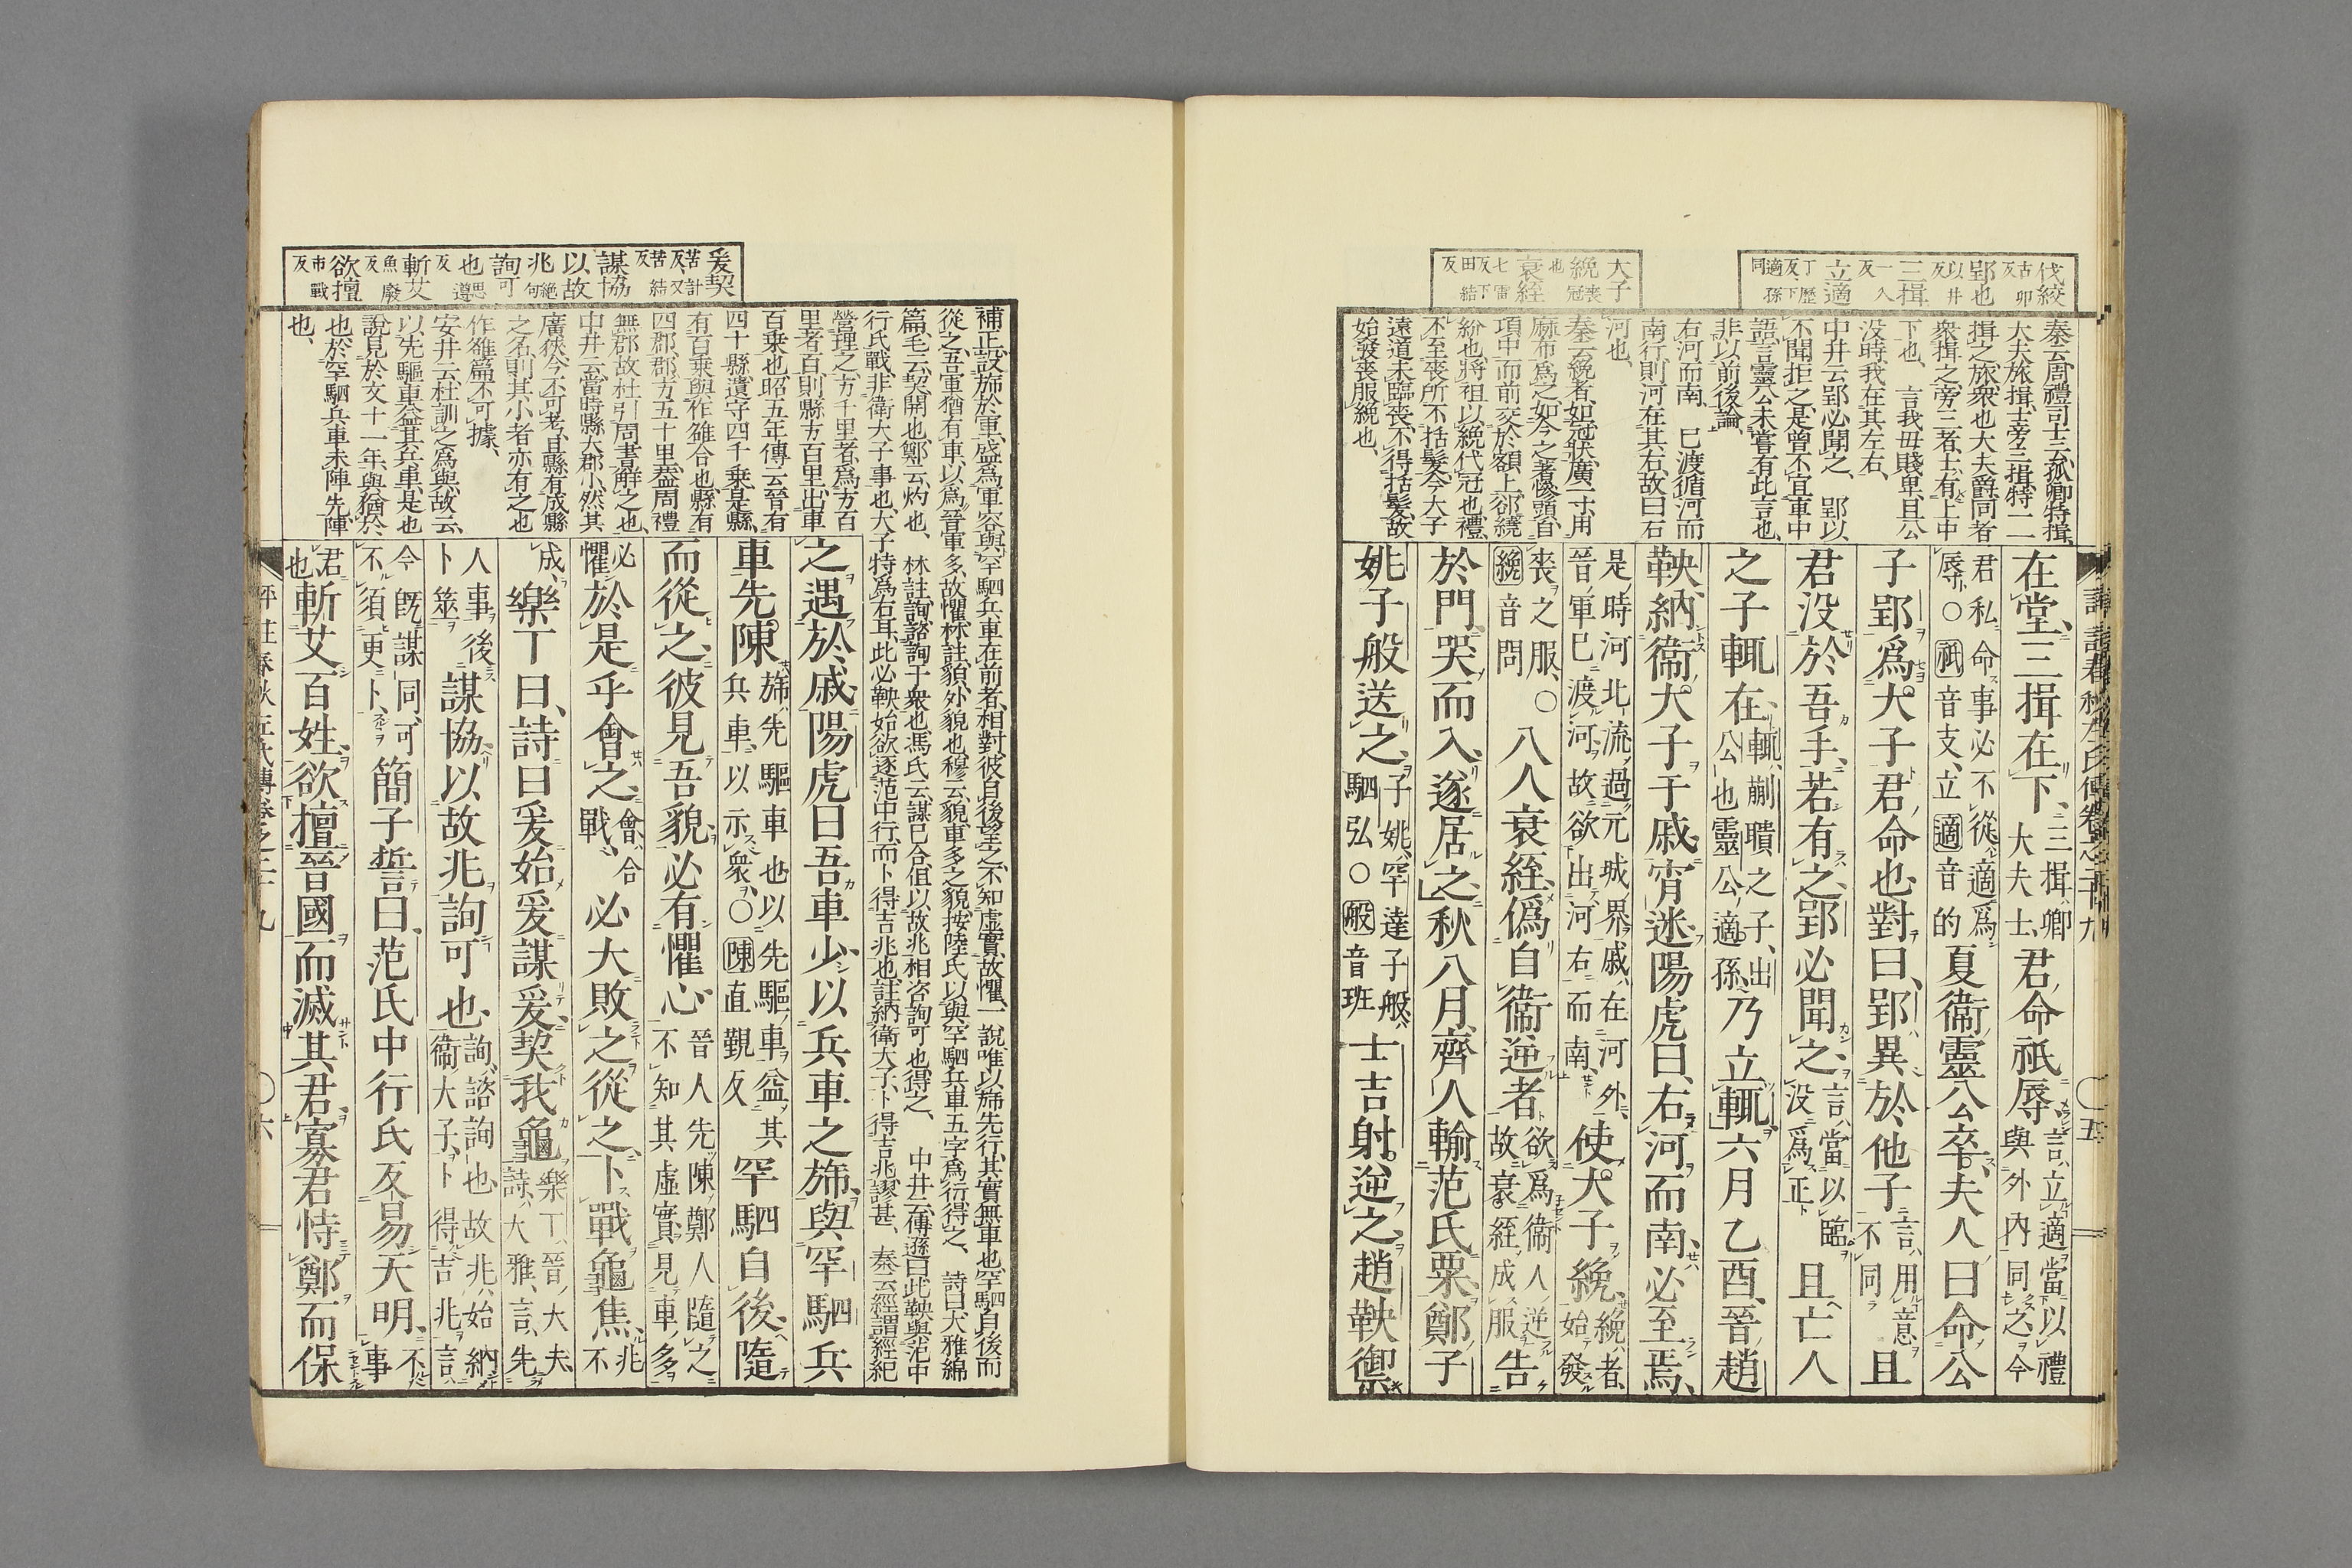 伐絞 古卯反
郢也 以井反
三揖 一入反
立適 丁歷反下適孫同
大子
絻 喪冠也
衰絰 七雷反下田結反
秦云周禮司士云孤卿特揖
大夫旅揖士旁三揖特一一
揖之旅衆也大夫爵同者
衆揖之旁三者士有上中
下也 言我毋賤卑且公
没時我在其左右
中井云郢必聞之 郢以
不聞拒之是曾不宜車中
語言靈公未嘗有此言也
非以前後論
右河而南 已渡循河而
南行則河在其右故曰右
河也
秦云絻者如冠狀廣一寸用
麻布爲之如今之著幓頭自
項中而前交於額上郤繞
紛也將袒以絻代冠也禮
不至喪所不括髮今大子
遠道未臨喪不得括髮故
始發喪服絻也
在堂三揖在下 三揖卿大夫士 君命祇辱 言立適當以禮與外内同之今
君私命事必不從適爲辱○祇音支立適音的 夏衞靈公卒夫人曰命公
子郢爲大子君命也對曰郢異於他子 言用意不同 且
君没於吾手若有之郢必聞之 言當以臨没爲正 且亡人
之子輒在 輒蒯聵之子出公也靈公適孫 乃立輒六月乙酉晉趙
鞅納衞大子于戚宵迷陽虎曰右河而南必至焉
是時河北流過元城界戚在河外晉軍已渡河故欲出河右而南 使大子絻 絻者始發
喪之服○絻音問 八人衰絰僞自衞逆者 欲爲衞人逆故衰絰成服 告
於門哭而入遂居之秋八月齊人輸范氏粟鄭子
姚子般送之 子姚罕達子般駟弘○般音班 士吉射逆之趙鞅禦
評註春秋左氏傳卷之二十九 ○五
爰契 苦計反又苦結反
謀協
以故
兆 絶句
詢可
也 思遵反
斬艾 魚廢反
欲擅 市戰反
補正設旆於軍盛爲軍容與罕駟兵車在前者相對彼自後望之不知虛實故懼一說唯以旆先行其實無車也罕駟自後而
從之吾軍猶有車以爲晉軍多故懼林註貌外貌也穆云貌車多之貌按陸氏以與罕駟兵車五字爲衍得之 詩曰大雅綿
篇毛云契開也鄭云灼也 林註詢諮詢于衆也馮氏云謀已合但以故兆相咨詢可也得之 中井云傳遜曰此鞅與范中
行氏戰非衛大子事也大子特爲右耳此必鞅始欲逐范中行而卜得吉兆也註納衛大子卜得吉兆謬甚 秦云經謂經紀
營理之方千里者爲方百
里者百則縣方百里出車
百乘也昭五年傳云晉有
四十縣遺守四千乘是縣
有百乘與作雒合也縣有
四郡郡方五十里蓋周禮
無郡故杜引周書解之也
中井云當時縣大郡小然其
廣狹今不可考且縣有成縣
之名則其小者亦有之也
作雒篇不可據
安井云杜訓之爲與故云
以先驅車益其兵車是也
說見於文十一年與猶於
也於罕駟兵車未陣先陣
也
之遇於戚陽虎曰吾車少以兵車之旆與罕駟兵
車先陳 旆先驅車也以先驅車益其兵車以示衆○陳直覲反 罕駟自後隨
而從之彼見吾貌必有懼心 晉人先陳鄭人隨之不知其虛實見車多
必懼 於是乎會之 會合戰 必大敗之從之卜戰龜焦 兆不
成 樂丁曰詩曰爰始爰謀爰契我龜 樂丁晉大夫詩大雅言先
人事後卜筮 謀協以故兆詢可也 詢諮詢也故兆始納衞大子卜得吉兆言
今旣謀同可不須更卜 簡子誓曰范氏中行氏反易天明 不事
君也 斬艾百姓欲擅晉國而滅其君寡君恃鄭而保
評註春秋左氏傳卷之二十九 ○六